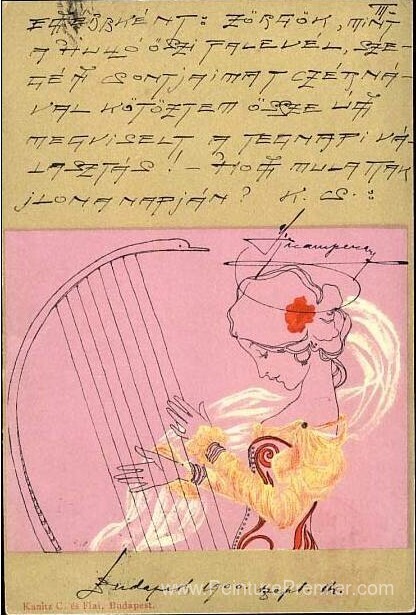 III.
EGÉBKÉNT: ZÖRGÖK, MINT
A HULLÓ ŐSZI FALEVÉL, SZE-
GÉNY CSONTJAIMAT CZÉRNÁ-
VAL KÖTÖZTEM ÖSSZE ÚGY
MEGVISELT A TEGNAPI VÁ-
LASZTÁS! – HOGY MULATTAK
ILONA NAPJÁN? K. CS.:
Budapest 1900 szept
Kanitz C. és Fiai, Budapest.
www.PeinturePremier.com